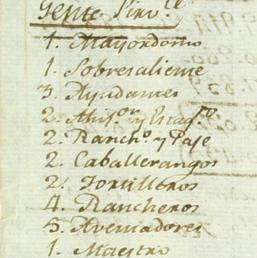 Gente Sirv.te
1. Mayordomo
1. Sobresaliente
3. Ayudantes
2. y
2. Ranch.o y Paje
2. Caballerangos
2. Tortilleros
4. Rancheros
5. Aventadores
1. Maestro